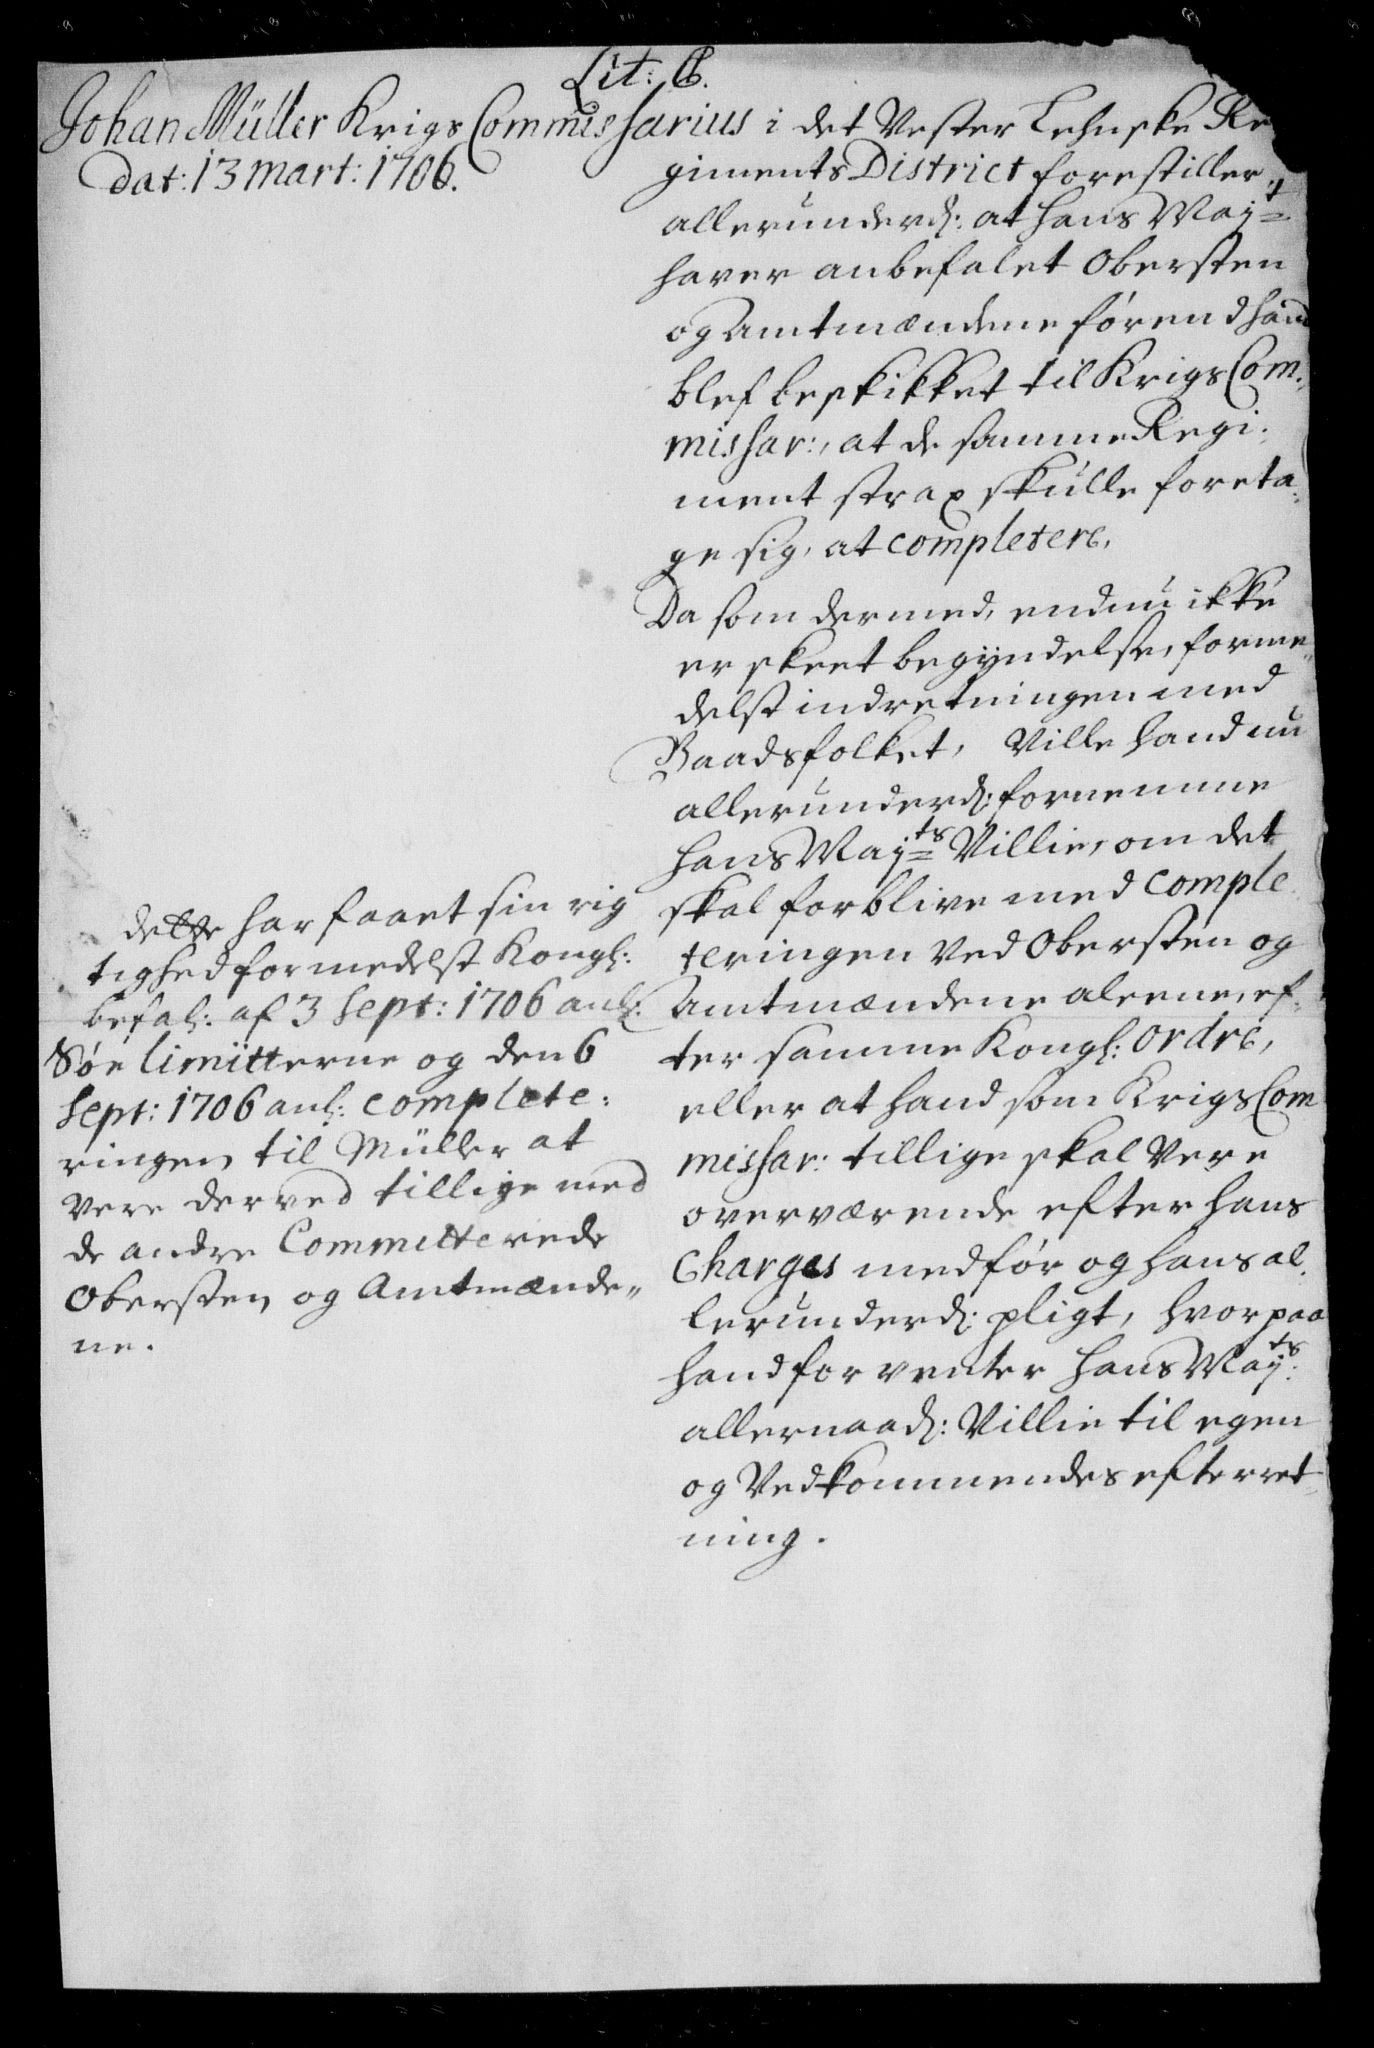 Lit: B.
Johan Müller Krigs Commissarius i det Vester Lehnske Re
dat: 13 mart: 1706.
giments District forestiller
allerunderd: at hans Maj:t
haver anbefalet Obersten
og Amtmændene førend hand
blef beskikket til Krigs Com-
missar:, at de samme Regi-
ment strax skulle foreta-
ge sig, at completere.
Da som dermed, endnu ikke
er skeet begyndelse, forme-
delst indretningen med
Baadsfolket, Ville hand nu
allerunderd: fornemme
hans Maj:ts Villie, om det
skal forblive med comple-
teringen ved Obersten og
Amtmændene aleene, ef-
ter samme Kongl: ordre,
eller at hand som Krigs Com
missar: tillige skal Vere
overværende efter hans
Charges medfør og hans al-
lerunderd: pligt, hvorpaa
hand forventer hans Maj:ts
allernaad: Villie til egen
og Vedkommendes efterret-
ning.
dette har faaet sin rig
tighed formedelst Kongl:
befal: af 3 Sept: 1706 anl:
Søe limitterne og den 6
Sept: 1706 anl: complete-
ringen til Müller at
vere derved tillige med
de andre Committerede
Obersten og Amtmænde-
ne.